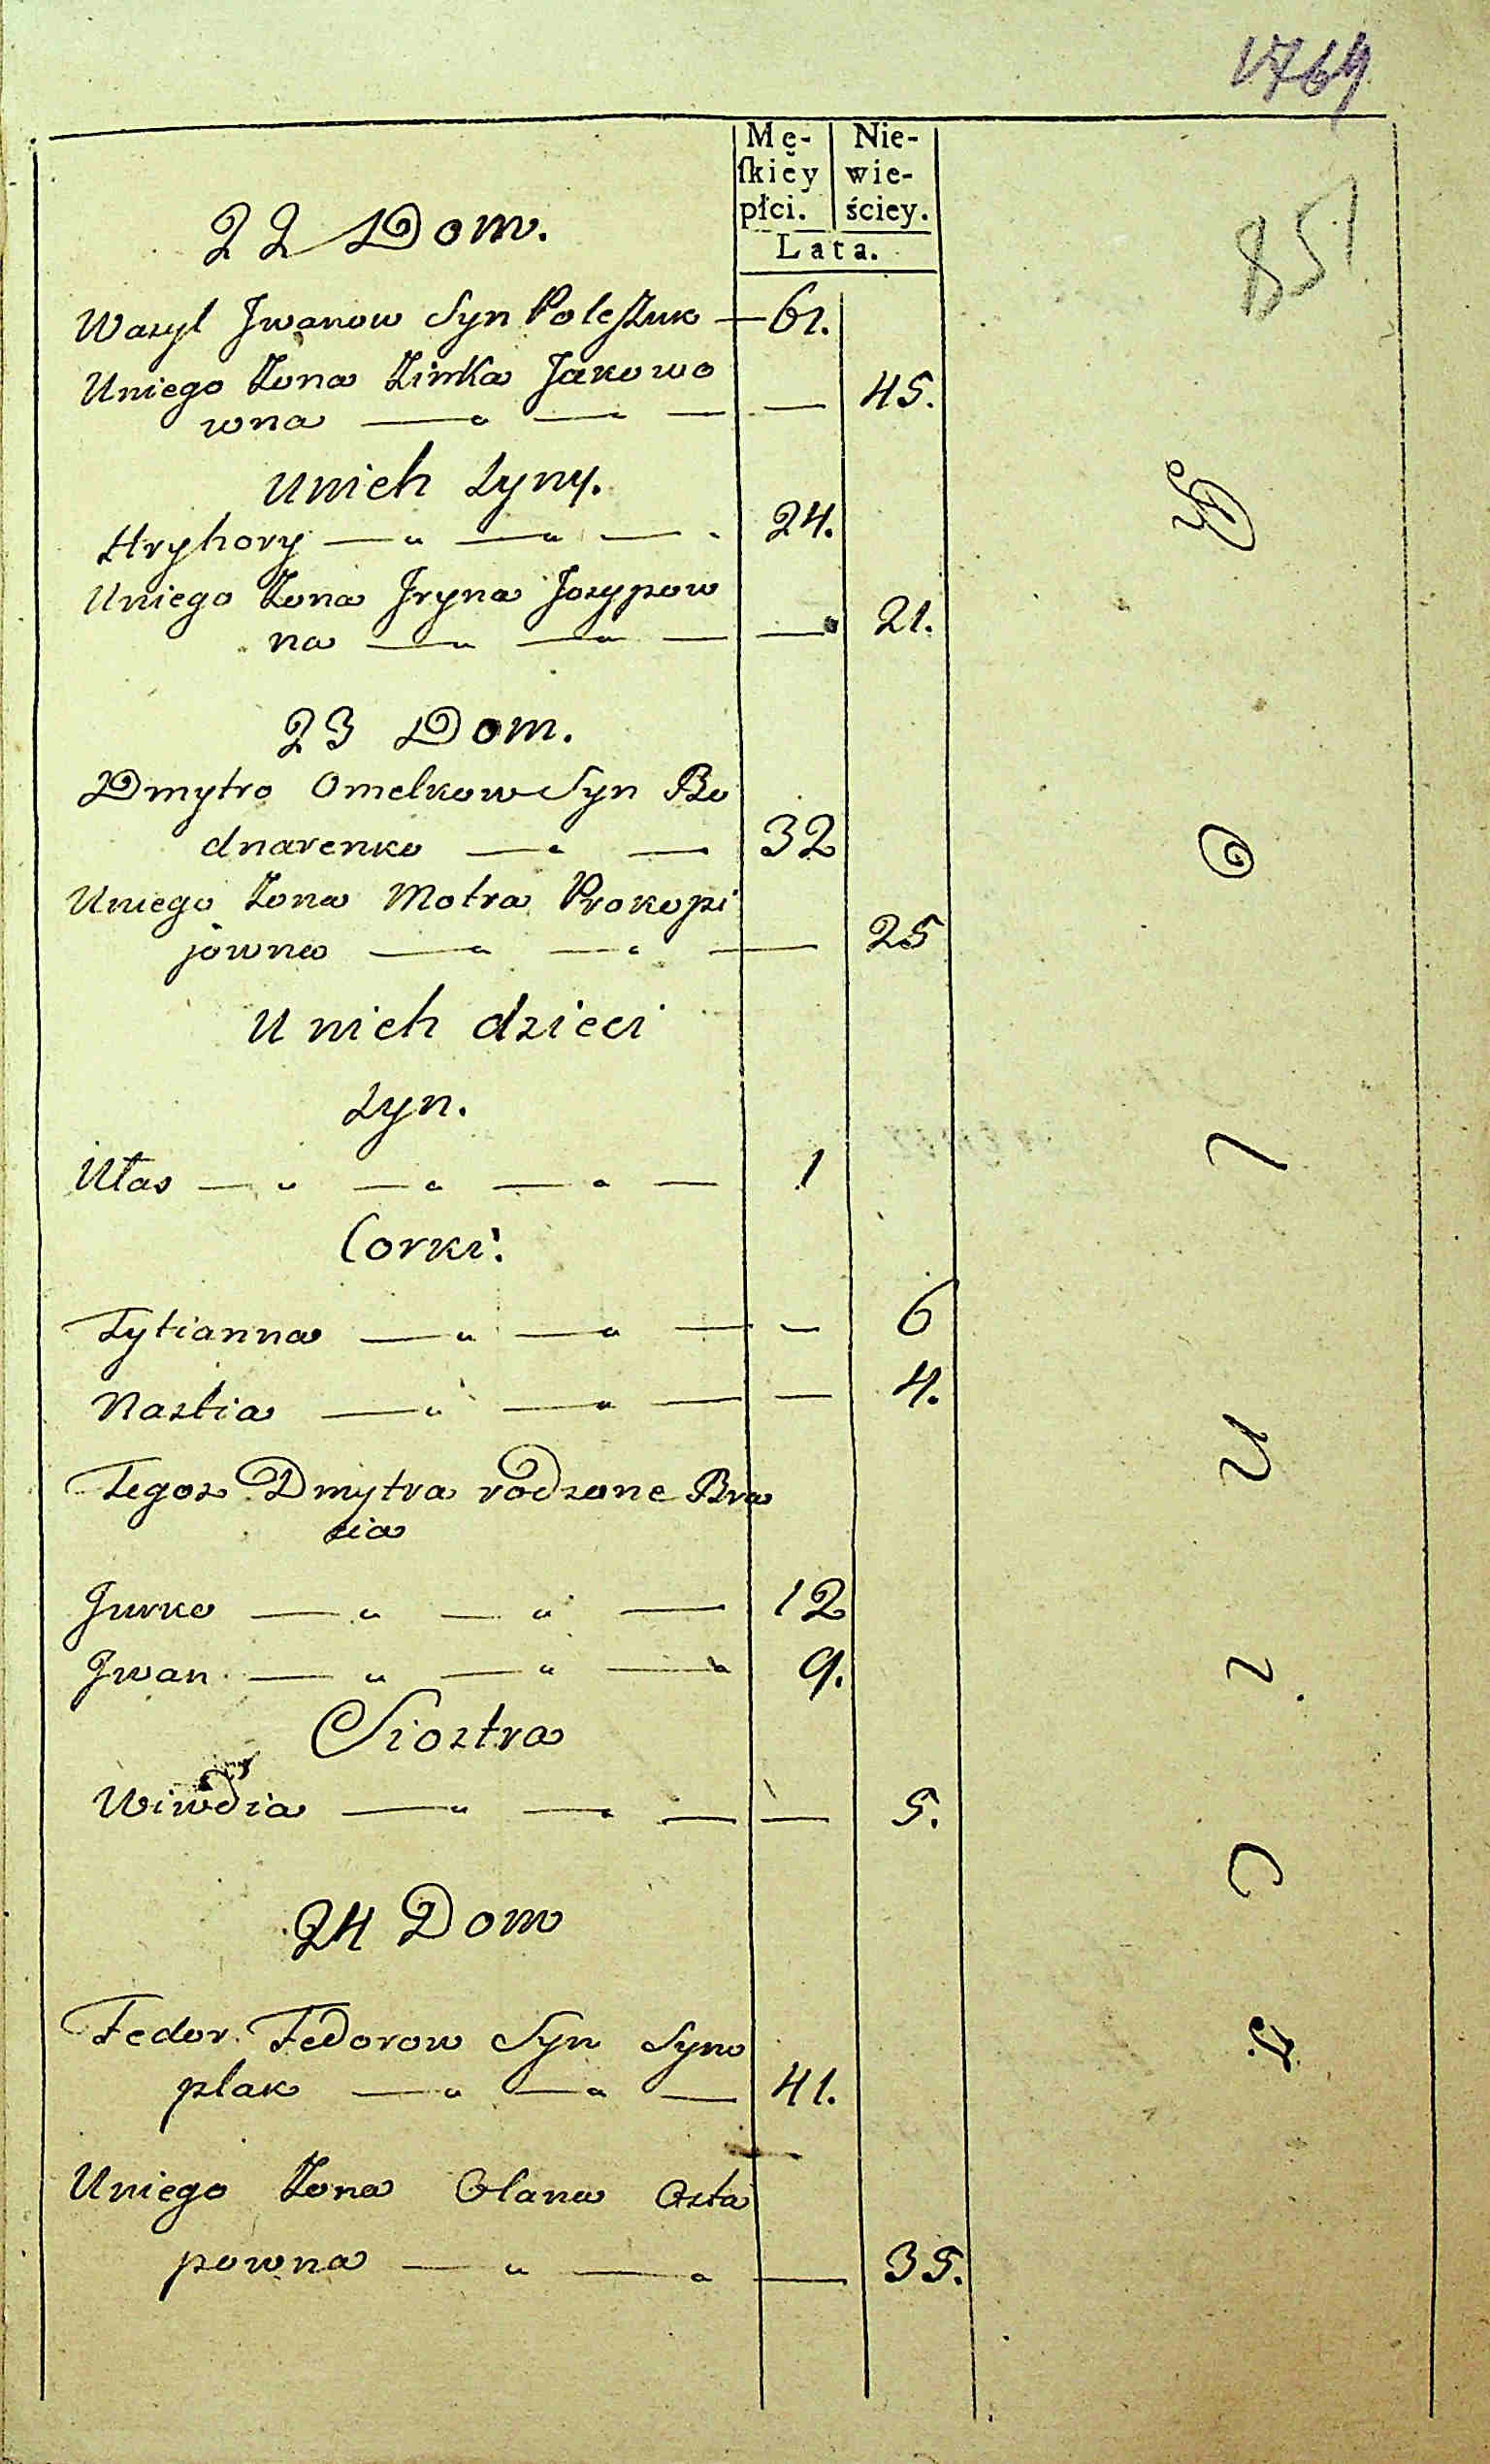 1764
Mę-
ſkiey
płci.
Nie-
wie-
ściey.
Lata.
851
22 Dom.
Wasyl Jwanow Syn Poleszuk — 61.
Uniego Zona Zinka Jakowo
wna — " — " — — 45.
Unich Syny.
Hryhory — " — " — . 24.
Uniego Zona Jryna Josypow
na — " — " — — 21.
23 Dom.
Dmytro Omelkow Syn Bo
dnarenko — " — 32
Uniego Zona Motra Prokopi
jowna — " — " — 25
U nich dzieci
Syn.
Ułas — " — " — " — 1
Corki:
Tytianna — " — " — — 6
Nastia — " — " — — 4.
Tegoz Dmytra rodzone Bra
cia
Jurko — " — " — 12
Jwan — " — " — " 9.
Siostra
Wiwdia — " — " — — 5.
24 Dom
Fedor Fedorow Syn Syno
plak — " — " — 41.
Uniego Zona Olana Osta
powna — " — " — 35.